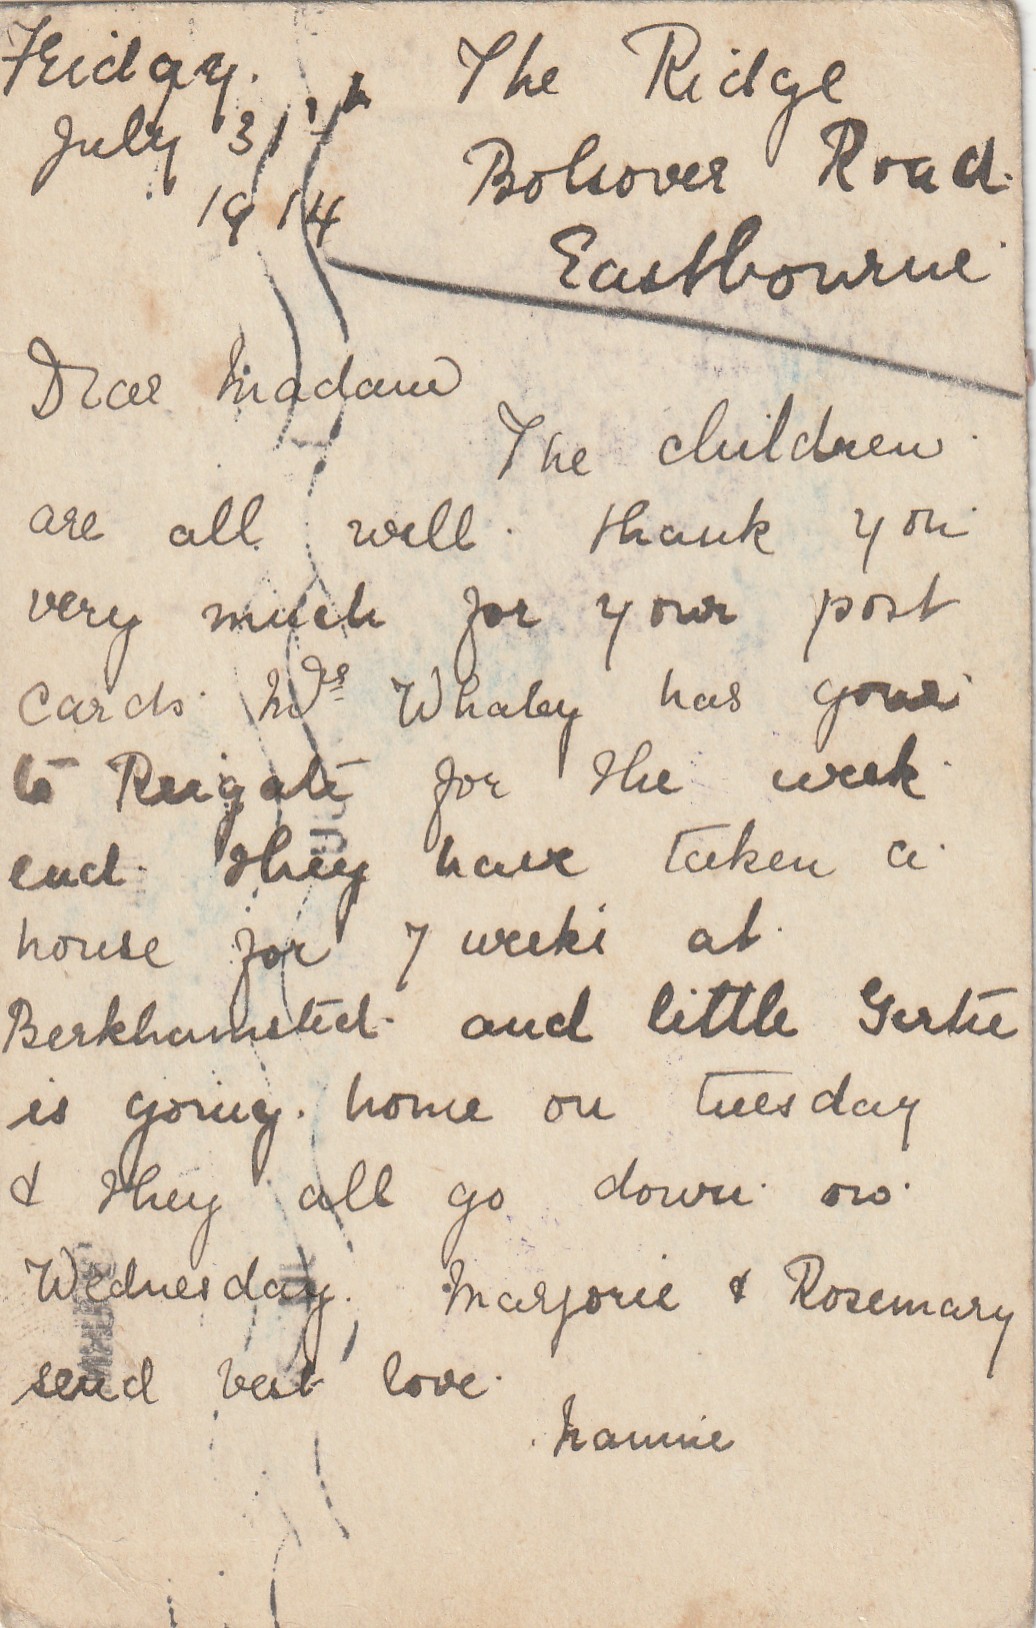 Friday.
July 31st
1914
The Ridge
Bolsover Road.
Eastbourne
Dear Madam
The children
are all well. thank you
very much for your post
cards. Mrs Whaley has gone
to Reigate for the week
end. they have taken a
house for 7 weeks at
Berkhamsted. and little Gertie
is going. home on tuesday
& they all go down on
Wednesday. Marjorie & Rosemary
send best love.
Nannie